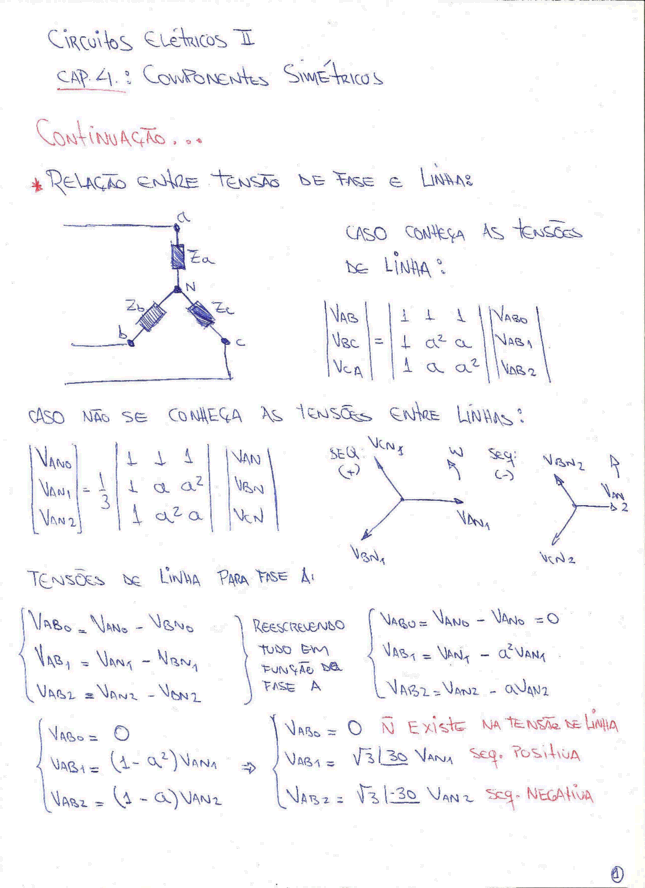 Circuitos Elétricos II
Cap. 4.: Componentes Simétricos
Continuação...
* Relação entre tensão de fase e linha:
a
Za
N
Zb
Zc
b
c
Caso conheça as tensões
de linha:
|VAB| |1 1 1| |VAB0|
|VBC| = |1 a² a| |VAB1|
|VCA| |1 a a²| |VAB2|
Caso não se conheça as tensões entre linhas:
|VAN0| |1 1 1| |VAN|
|VAN1| = 1/3 |1 a a²| |VBN|
|VAN2| |1 a² a| |VCN|
SEQ. (+)
VCN1
W
VAN1
VBN1
Seq. (-)
VBN2
VAN2
VCN2
Tensões de linha para fase A:
VAB0 = VAN0 - VBN0
VAB1 = VAN1 - VBN1
VAB2 = VAN2 - VBN2
Reescrevendo
tudo em
função da
fase A
VAB0 = VAN0 - VAN0 = 0
VAB1 = VAN1 - a²VAN1
VAB2 = VAN2 - aVAN2
VAB0 = 0
VAB1 = (1 - a²)VAN1
VAB2 = (1 - a)VAN2
⇒
VAB0 = 0 Ñ existe na tensão de linha
VAB1 = √3 |30 VAN1 seq. positiva
VAB2 = √3 |-30 VAN2 seq. negativa
1